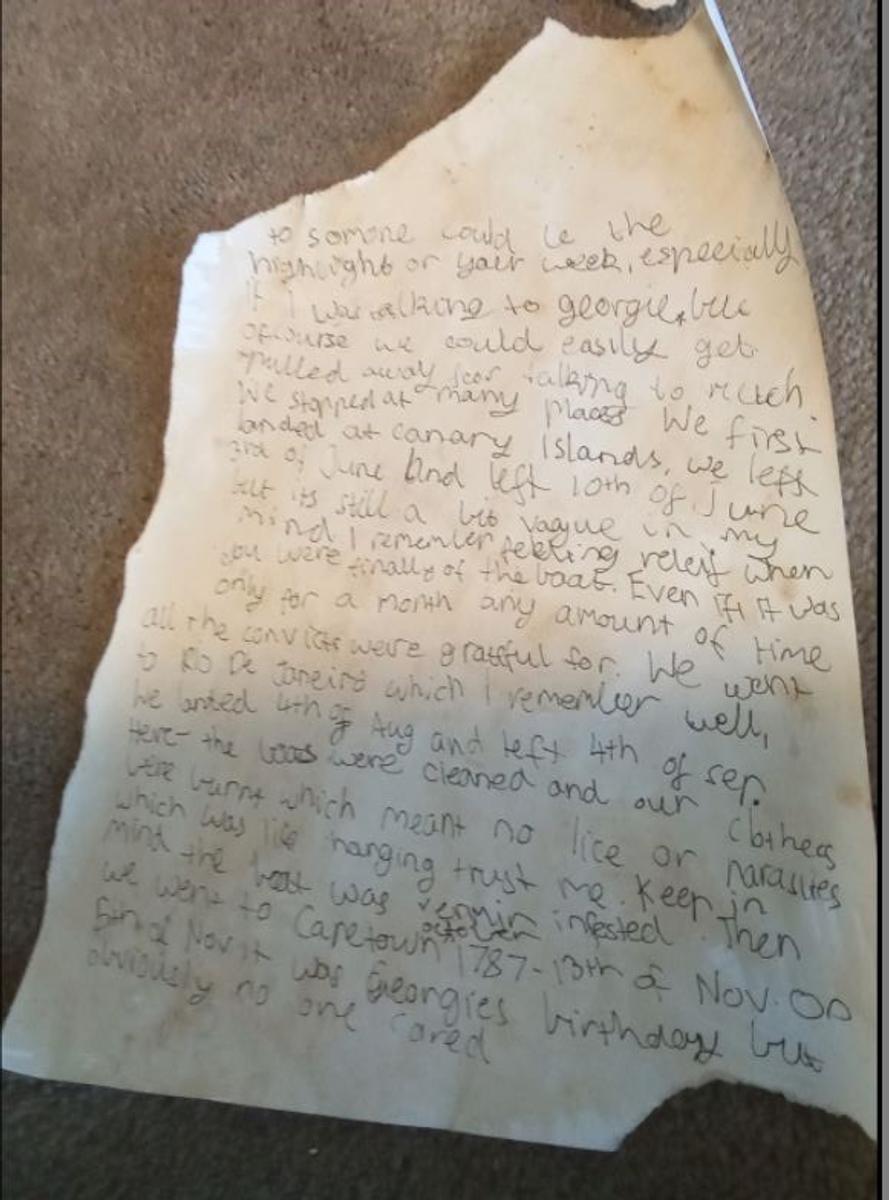 to somone could be the
highlight of your week, especially
if I was talking to georgie, but
ofcourse we could easily get
pulled away for talking to much.
We stopped at many places We first
landed at canary Islands, we left
3rd of June and left 10th of June
but its still a bit vague in my
mind I remember feeling releif when
you were finally of the boat. Even if it was
only for a month any amount of time
all the convicts were gratful for. We went
to Rio De Janeiro which I remember well,
We landed 4th of Aug and left 4th of sep.
Here- the boats were cleaned and our clothees
were burnt which meant no lice or parasites
which was like hanging trust me. Keep in
mind the boat was vermin infested. Then
we went to Capetown october 1787-13th of Nov. On
5th of Nov it was Georgies birthday but
obviously no one cared